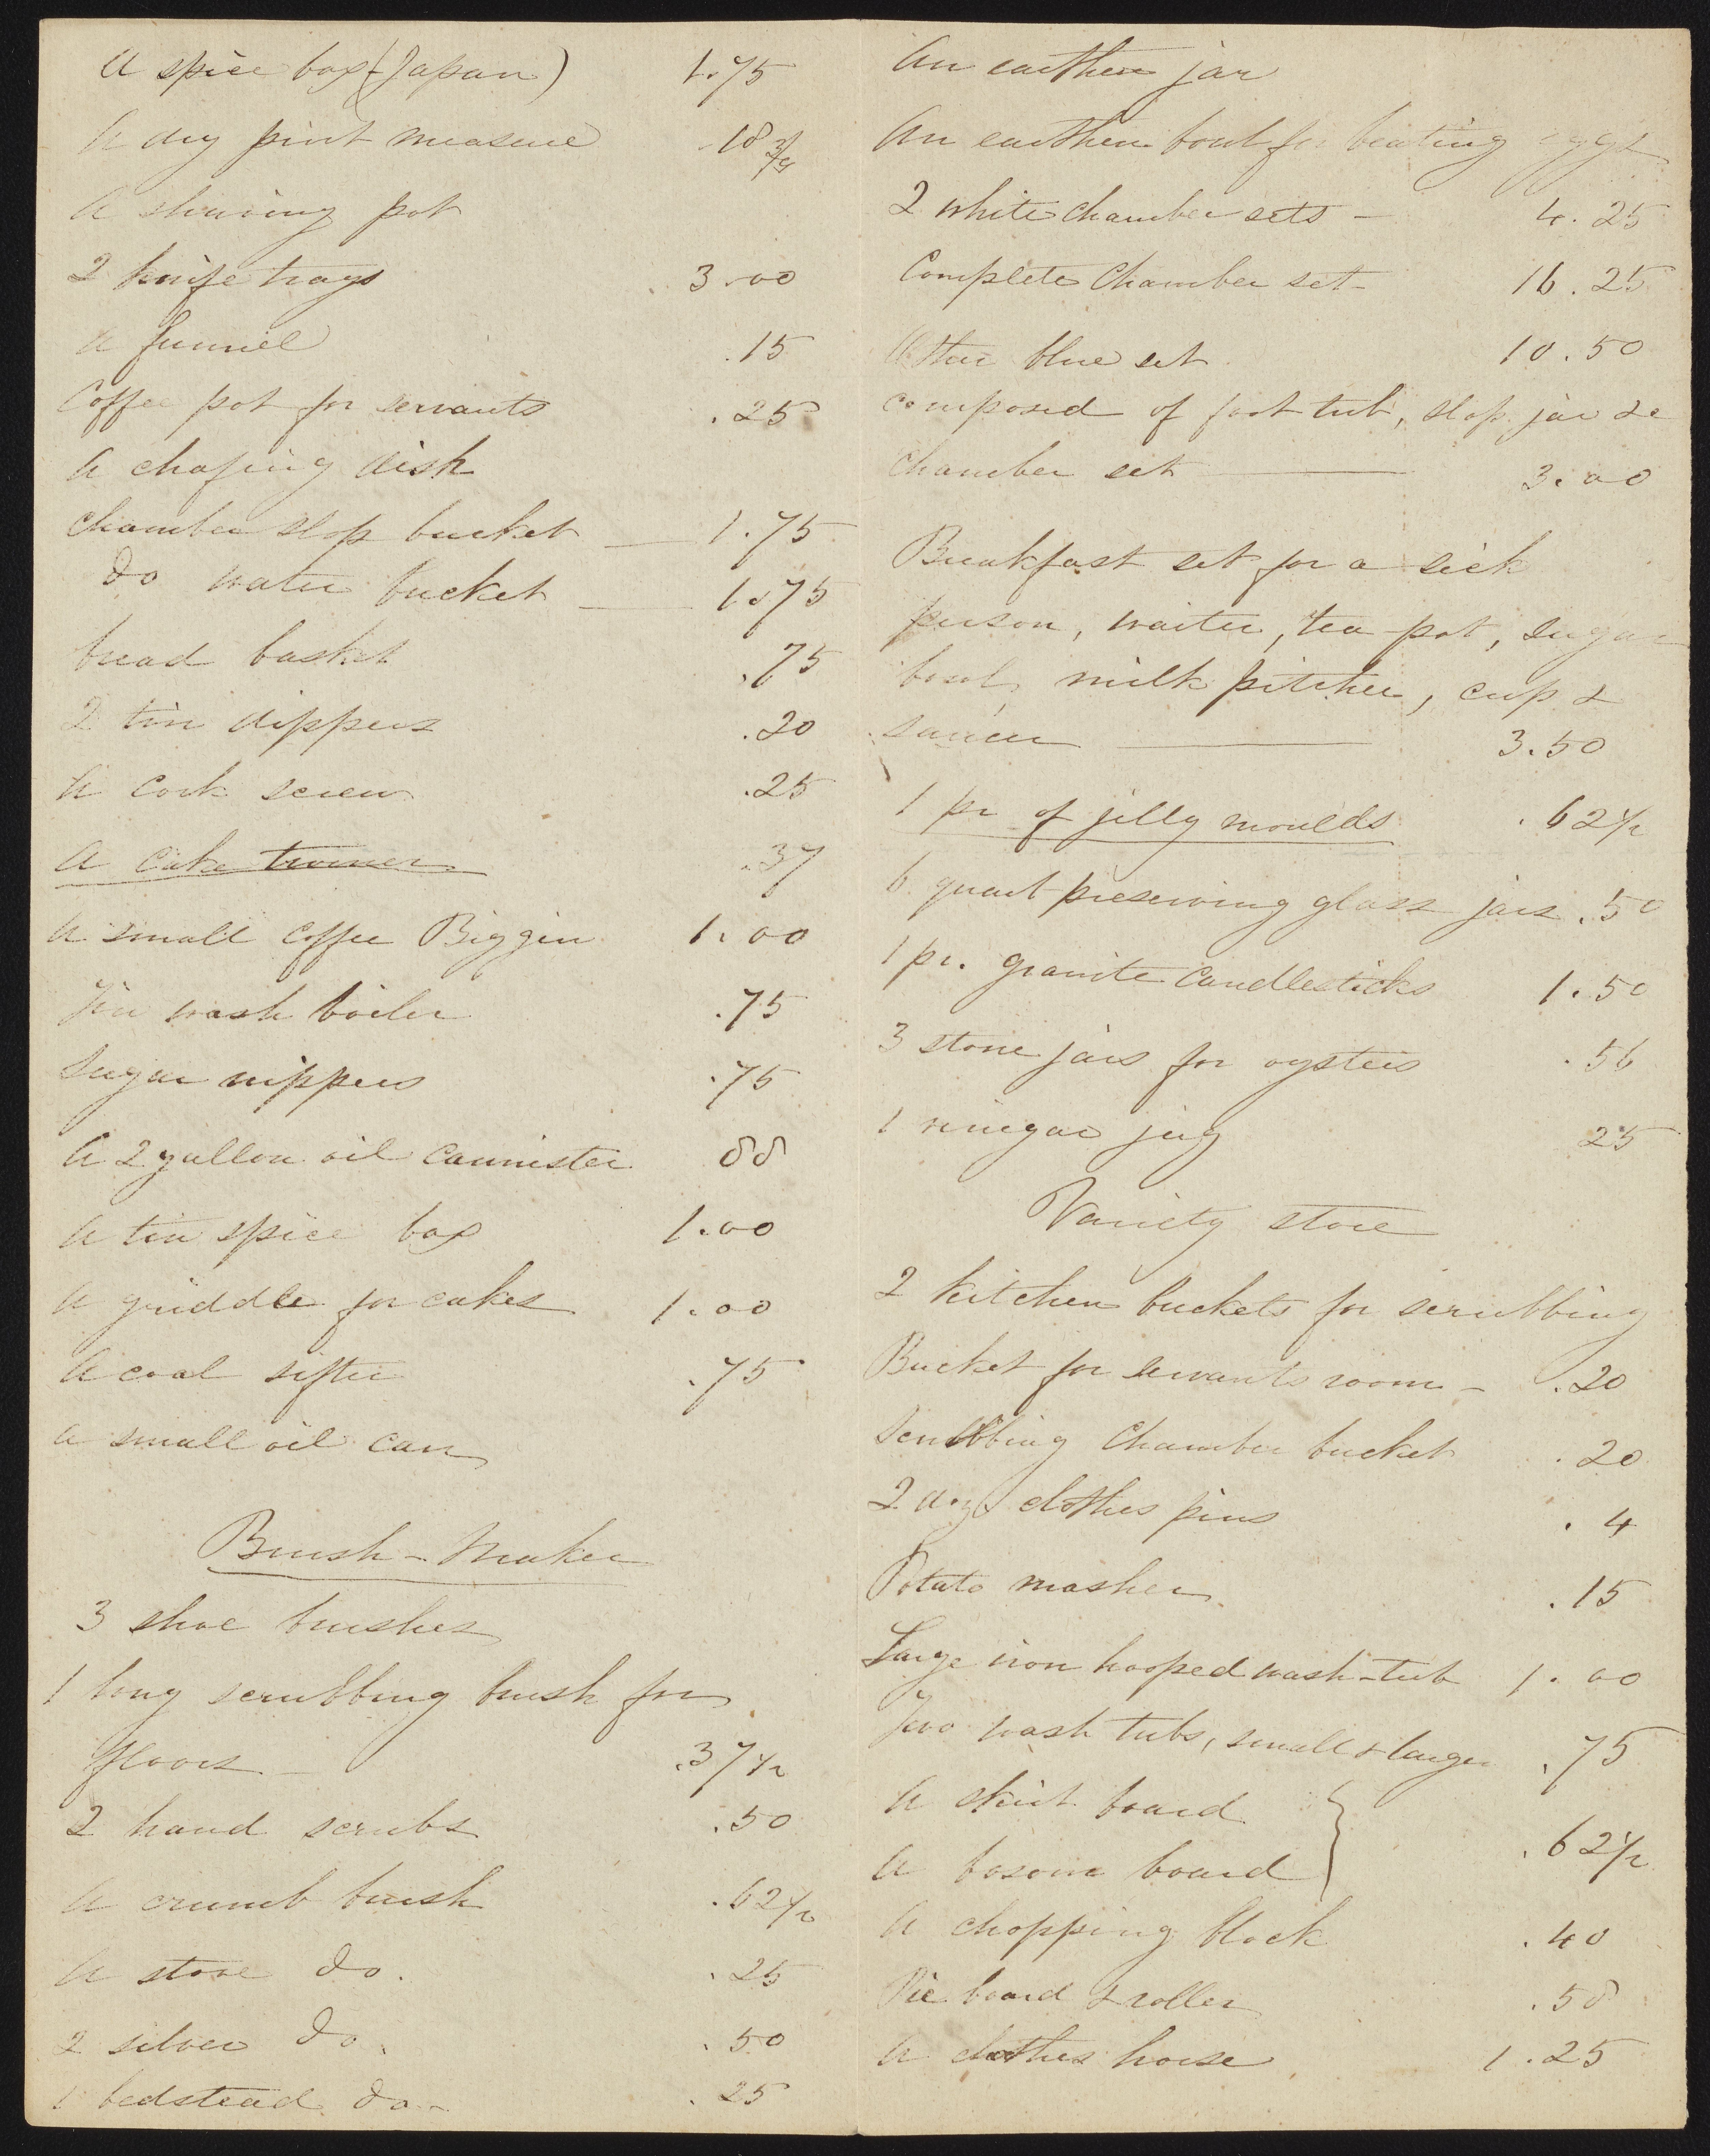 A spice box (Japan) 1.75
A dry pint measure .18 3/4
A shaving pot
2 knife trays 3.00
A funnel .15
Coffee pot for servants .25
A chafing dish
Chamber slop bucket — 1.75
Do water bucket — 1.75
bread basket .75
2 tin dippers .20
A cork screw .25
A cake turner .37
A small coffee Biggin 1.00
Tin wash boiler .75
Sugar nippers .75
A 2 gallon oil cannister 88
A tin spice box 1.00
A griddle for cakes 1.00
A coal sifter .75
a small oil can
Brush-Maker
3 shoe brushes
1 long scrubbing brush for
floors — .37 1/2
2 hand scrubs .50
A crumb brush .62 1/2
A stove do. .25
2 silver do. .50
1 bedstead do- .25
An earthen jar
An earthen bowl for beating eggs
2 white chamber sets - 4.25
Complete Chamber set- 16.25
blue set 10.50
composed of foot tub, slop jar &c
Chamber set — 3.00
Breakfast set for a sick
person, waiter, tea-pot, sugar
bowl, milk pitcher, cup &
saucer — 3.50
1 pr of jelly moulds .62 1/2
6 quart preserving glass jars .50
1 pr. granite candlesticks 1.50
3 stone jars for oysters .56
1 vinegar jug 25
Variety store
2 kitchen buckets for scrubbing
Bucket for servants room - .20
Scrubbing Chamber bucket .20
2 doz clothes pins . 4
Potato masher .15
Large iron hooped wash-tub 1.00
Two wash tubs, small & large .75
A skirt board
A bosom board } .62 1/2
A chopping block .40
Pie board & roller .50
A clothes horse 1.25